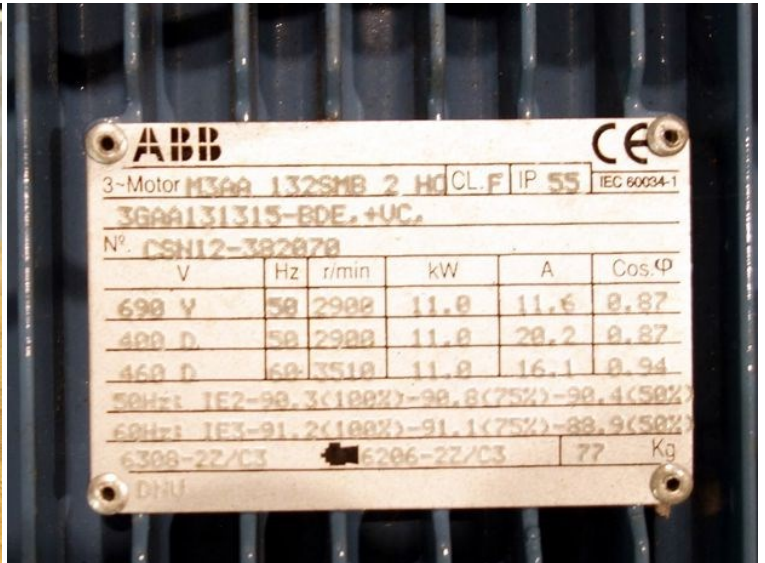 ABB CE
3~Motor M3AA 132SMB 2 HO CL. F IP 55 IEC 60034-1
3GAA131315-BDE,+VC,
Nº. CSN12-382070
V Hz r/min kW A Cos.φ
690 Y 50 2900 11.0 11.6 0.87
400 D 50 2900 11.0 20.2 0.87
460 D 60 3510 11.0 16.1 0.94
50Hz: IE2-90.3(100%)-90.8(75%)-90.4(50%)
60Hz: IE3-91.2(100%)-91.1(75%)-88.9(50%)
6308-2Z/C3 6206-2Z/C3 77 Kg
DNV